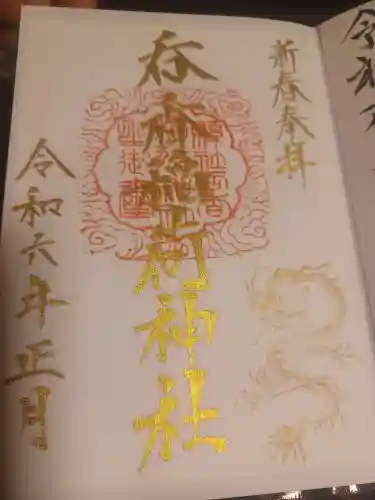 令和
新春奉拝
呑香稲荷神社
令和六年正月